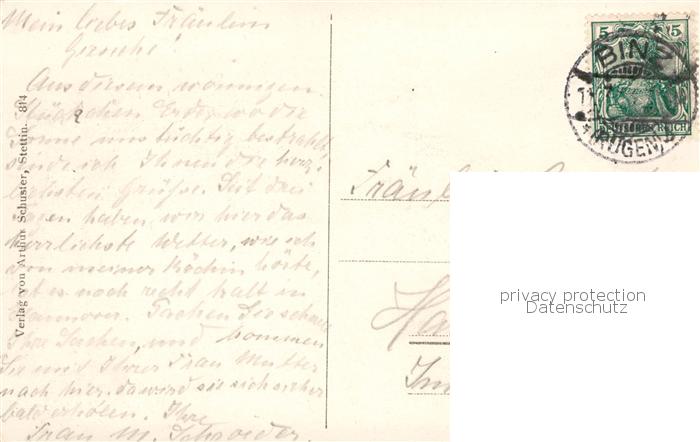 Mein liebes Fräulein
Gesuche!
Aus diesem wonnigen
Stückchen Erde, wo die
Sonne uns tüchtig bestrahlt
sende ich Ihnen die herz-
lichsten Grüße. Seit drei
Tagen haben wir hier das
herrlichste Wetter, wie ich
von meiner Köchin hörte,
ist es noch recht kalt in
Hannover. Packen Sie schnell
Ihre Sachen, und kommen
Sie mit Ihrer Frau Mutter
nach hier. da wird sie sich sicher
bald erholen. Ihre
Frau M. Schröder.
Verlag von Arthur Schuster, Stettin. 814
5 5
DEUTSCHES REICH
BINZ
(RÜGEN)
Fräulein
Ha
Im
privacy protection
Datenschutz